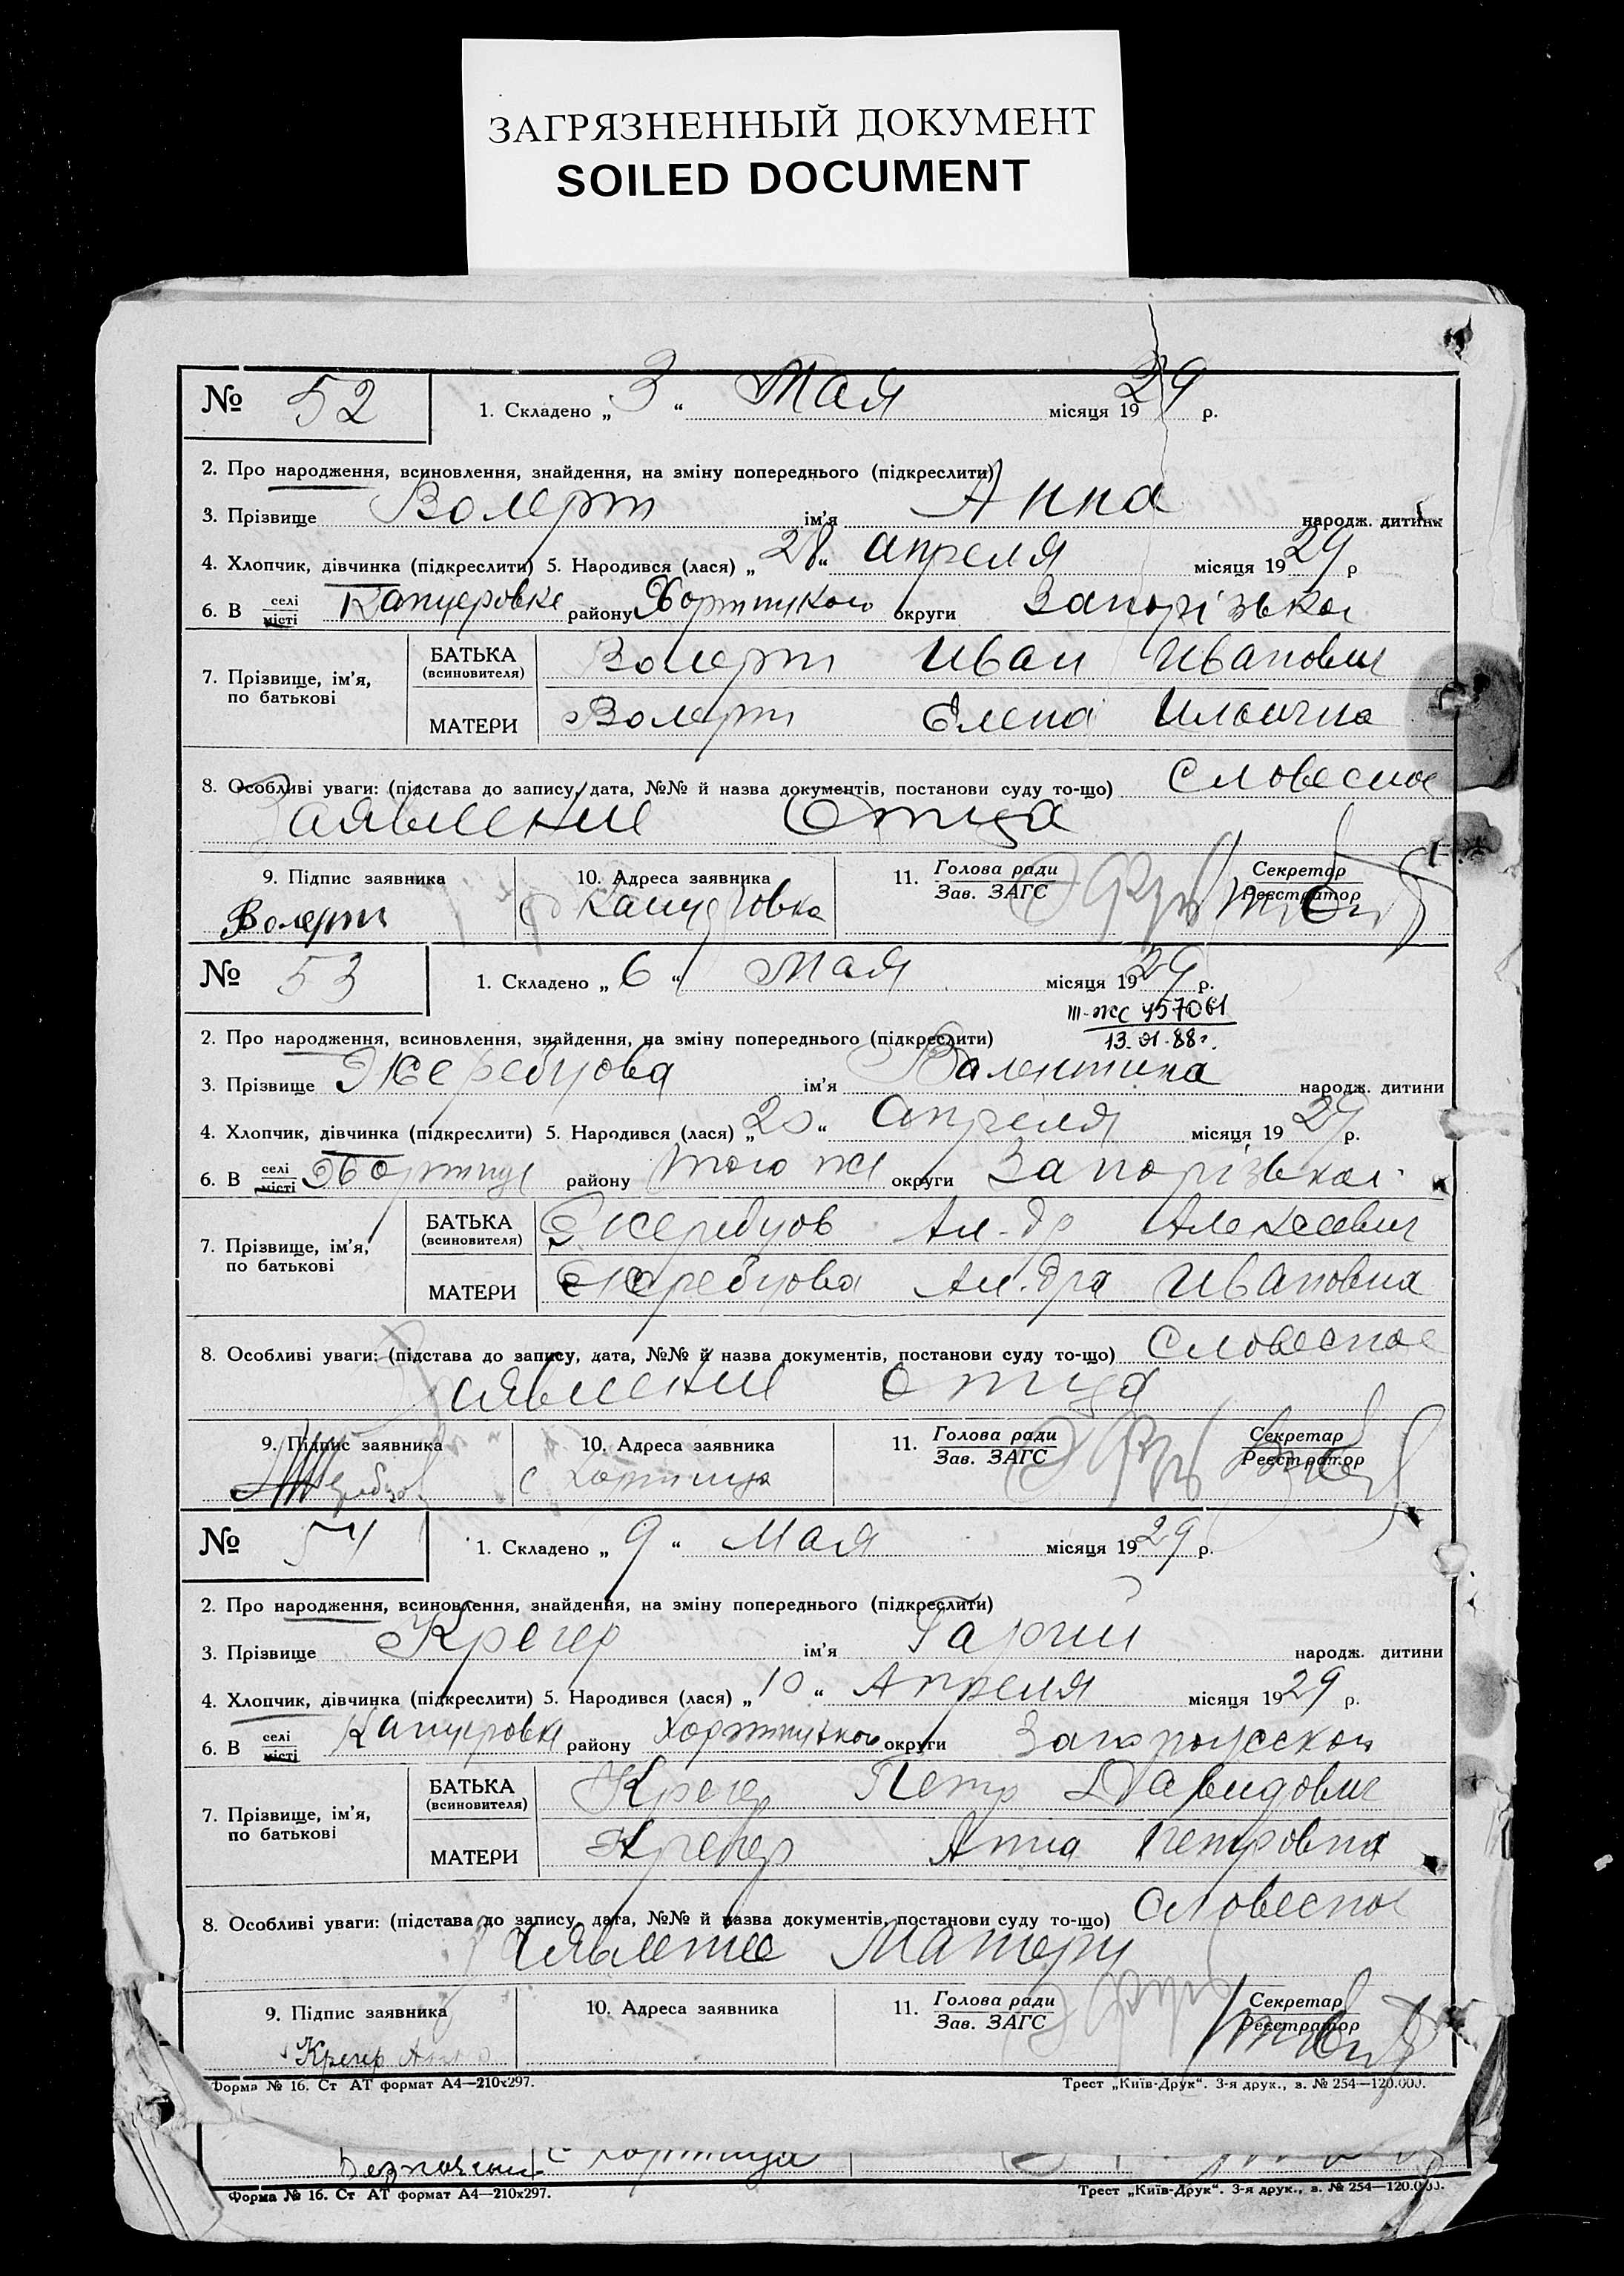 ЗАГРЯЗНЕННЫЙ ДОКУМЕНТ
SOILED DOCUMENT
№ 52 1. Складено „ 3 “ Мая місяця 1929 р.
2. Про народження, всиновлення, знайдення, на зміну попереднього (підкреслити)
3. Прізвище Волерт ім'я Анна народж. дитини
4. Хлопчик, дівчинка (підкреслити) 5. Народився (лася) „ 28 “ апреля місяця 1929 р
6. В селі місті Канцеровке району Хортицкого округи Запорізької
7. Прізвище, ім'я, по батькові
БАТЬКА (всиновителя) Волерт Иван Иванович
МАТЕРИ Волерт Елена Ильична
8. Особливі уваги: (підстава до запису, дата, №№ й назва документів, постанови суду то-що) Словесное
Заявление Отца
9. Підпис заявника 10. Адреса заявника 11. Голова ради Секретар
Зав. ЗАГС Реєстратор
Волерт с Канцеровка
№ 53 1. Складено „ 6 “ Мая місяця 1929 р.
III-ЖС 457061
2. Про народження, всиновлення, знайдення, на зміну попереднього (підкреслити) 13.01.88г.
3. Прізвище Жеребцова ім'я Валентина народж. дитини
4. Хлопчик, дівчинка (підкреслити) 5. Народився (лася) „ 20 “ Апреля місяця 1929 р.
6. В селі місті Хортице району того же округи Запорізької
7. Прізвище, ім'я, по батькові
БАТЬКА (всиновителя) Жеребцов Ал-др Алексеевич
МАТЕРИ Жеребцова Ал-дра Ивановна
8. Особливі уваги: (підстава до запису, дата, №№ й назва документів, постанови суду то-що) Словесное
Заявление отца
9. Підпис заявника 10. Адреса заявника 11. Голова ради Секретар
Зав. ЗАГС Реєстратор
Жеребцов с Хортица
№ 54 1. Складено „ 9 “ Мая місяця 1929 р.
2. Про народження, всиновлення, знайдення, на зміну попереднього (підкреслити)
3. Прізвище Крегер ім'я народж. дитини
4. Хлопчик, дівчинка (підкреслити) 5. Народився (лася) „ 10 “ Апреля місяця 1929 р.
6. В селі місті Канцеровке району Хортицкого округи Запорожской
7. Прізвище, ім'я, по батькові
БАТЬКА (всиновителя) Крегер Петр Давидович
МАТЕРИ Крегер Анна Петровна
8. Особливі уваги: (підстава до запису, дата, №№ й назва документів, постанови суду то-що) Словесное
Заявление Матери
9. Підпис заявника 10. Адреса заявника 11. Голова ради Секретар
Зав. ЗАГС Реєстратор
Крегер Анна
Форма № 16. Ст АТ формат А4—210х297. Трест „Київ-Друк“. 3-я друк., з. № 254—120.000.
с Хортица
Форма № 16. Ст АТ формат А4—210х297. Трест „Київ-Друк“. 3-я друк., з. № 254—120.000.